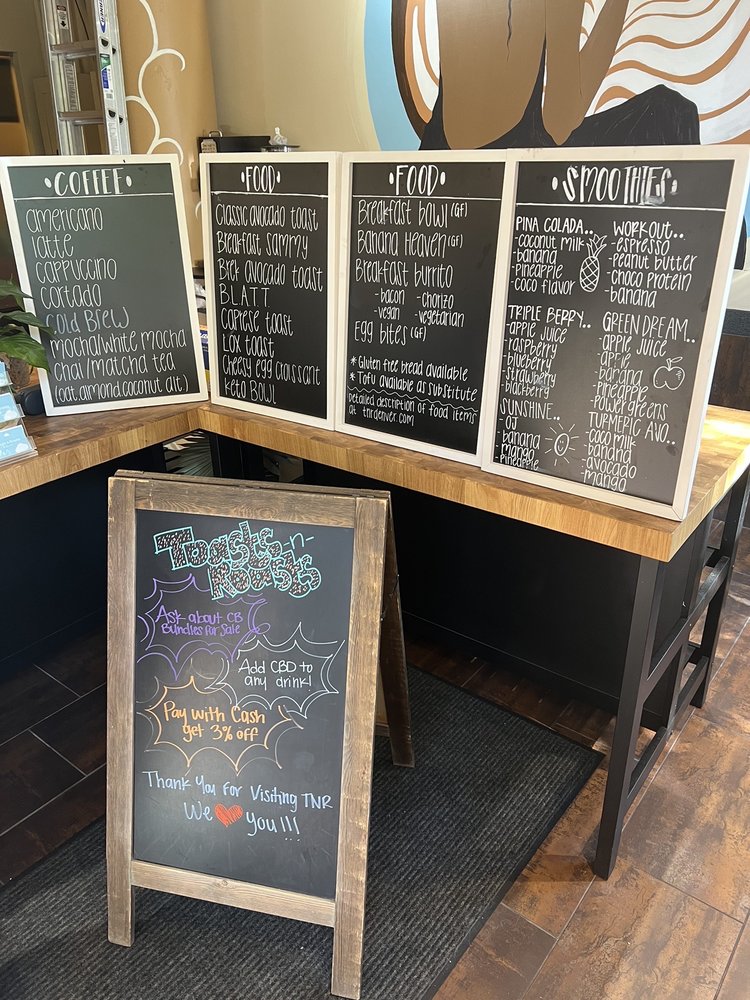 COFFEE
americano
latte
cappuccino
cortado
cold Brew
mocha/white mocha
chai/matcha tea
(oat,almond,coconut alt)
FOOD
Classic avocado toast
Breakfast sammy
Brek avocado toast
BLATT
caprese toast
Lox toast
Cheesy egg croissant
keto Bowl
FOOD
Breakfast bowl (GF)
Banana Heaven (GF)
Breakfast burrito
-bacon -chorizo
-vegan -vegetarian
Egg bites (GF)
* Gluten free bread available
* Tofu available as substitute
detailed description of food items
at tnrdenver.com
SMOOTHIES
PINA COLADA..
-coconut milk
-banana
-pineapple
-coco flavor
WORKOUT..
-espresso
-peanut butter
-choco protein
-banana
TRIPLE BERRY..
-apple juice
-raspberry
-blueberry
-strawberry
-blackberry
GREEN DREAM..
-apple juice
-apple
-banana
-pineapple
-powergreens
SUNSHINE..
-OJ
-banana
-mango
-pineapple
TURMERIC AVO..
-coco milk
-banana
-avocado
-mango
Toasts-n-
Roasts
Ask about CB
Bundles for Sale
Add CBD to
any drink!
Pay with Cash
get 3% off
Thank You For Visiting TNR
We you!!!